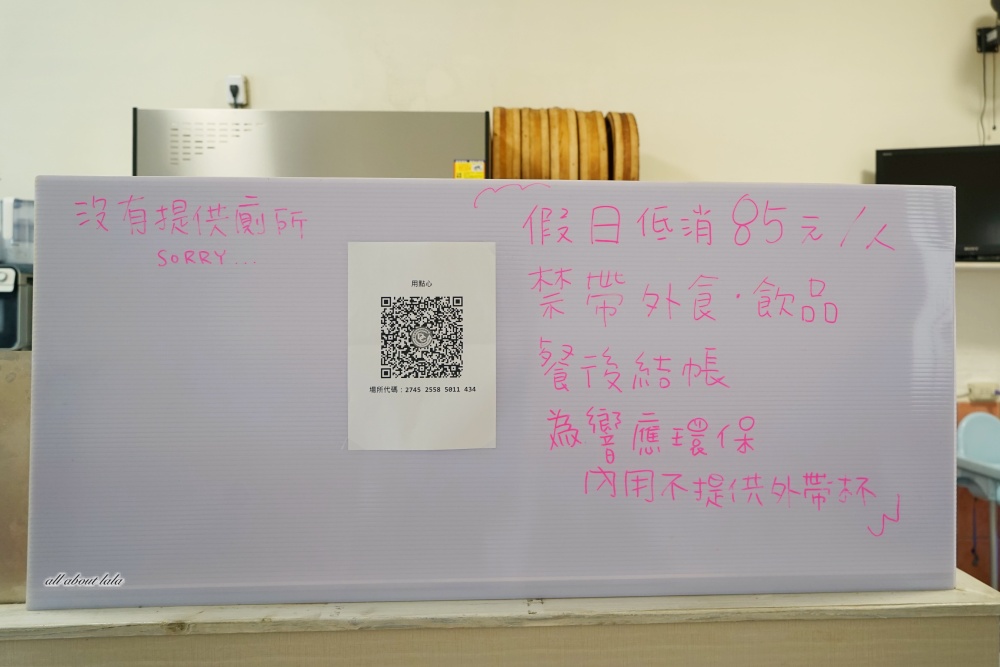 沒有提供廁所
SORRY...
用點心
場所代碼：2745 2558 5011 434
假日低消85元/人
禁帶外食·飲品
餐後結帳
為響應環保
內用不提供外帶杯
all about lala